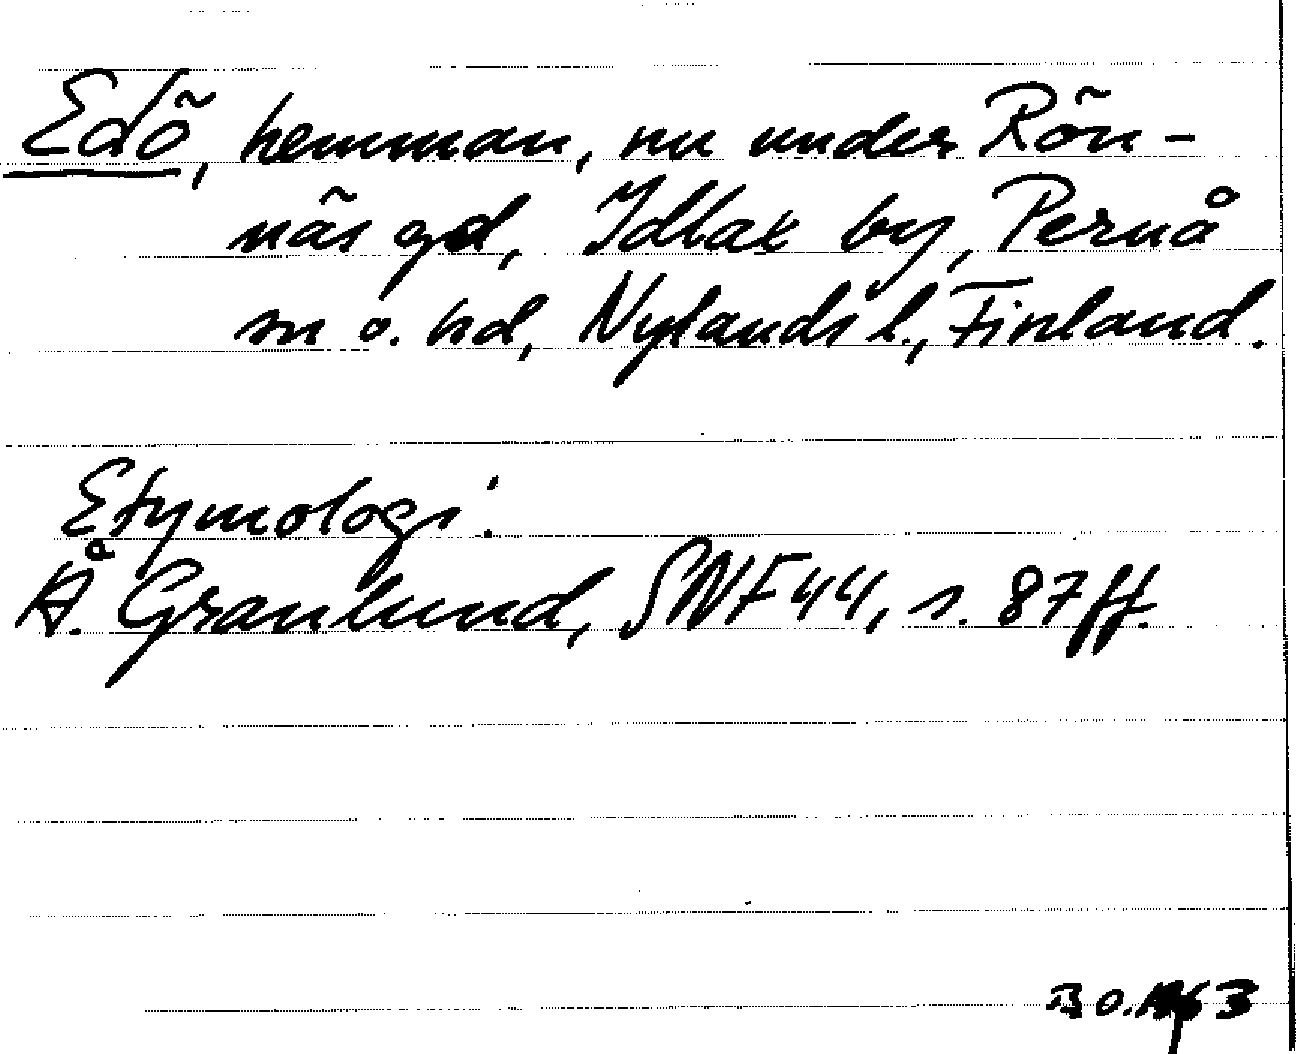 Edö, hemman, nu under Rön-
näs gd, Idlax by, Pernå
sn o. hd, Nylands l., Finland.
Etymologi:
Å. Granlund, SNF 44, s. 87 ff.
B O. 1963